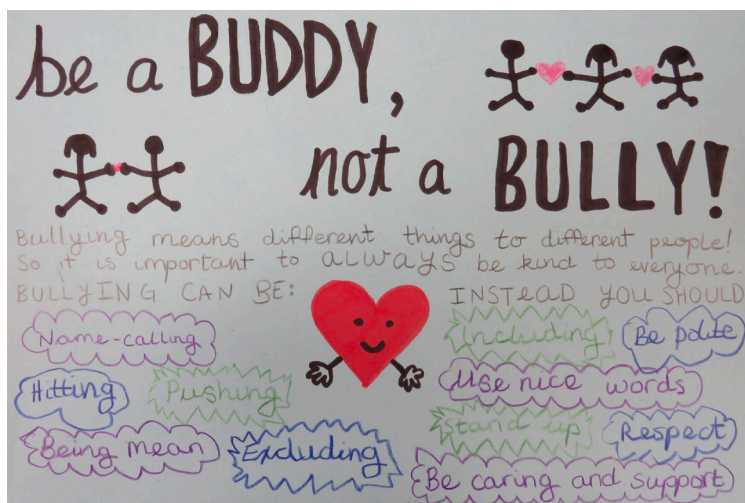 be a BUDDY,
not a BULLY!
Bullying means different things to different people!
So it is important to ALWAYS be kind to everyone.
BULLYING CAN BE:
Name-calling
Hitting
Pushing
Being mean
Excluding
INSTEAD YOU SHOULD
Including
Be polite
Use nice words
Stand up
Respect
Be caring and support